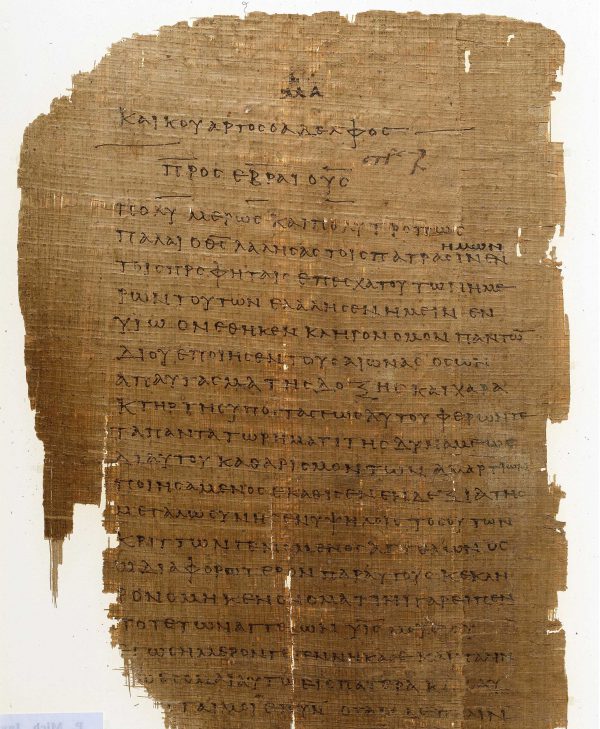 ΜΑ
ΚΑΙ ΚΟΥΑΡΤΟϹ Ο ΑΔΕΛΦΟϹ
ΠΡΟϹ ΕΒΡΑΙΟΥϹ
ΠΟΛΥΜΕΡΩϹ ΚΑΙ ΠΟΛΥΤΡΟΠΩϹ
ΗΜΩΝ
ΠΑΛΑΙ Ο Θ̅Ϲ̅ ΛΑΛΗϹΑϹ ΤΟΙϹ ΠΑΤΡΑϹΙΝ ΕΝ
ΤΟΙϹ ΠΡΟΦΗΤΑΙϹ ΕΠ ΕϹΧΑΤΟΥ ΤΩΝ ΗΜΕ
ΡΩΝ ΤΟΥΤΩΝ ΕΛΑΛΗϹΕΝ ΗΜΕΙΝ ΕΝ
ΥΙΩ ΟΝ ΕΘΗΚΕΝ ΚΛΗΡΟΝΟΜΟΝ ΠΑΝΤΩ̅
ΔΙ ΟΥ ΕΠΟΙΗϹΕΝ ΤΟΥϹ ΑΙΩΝΑϹ ΟϹ ΩΝ
ΑΠΑΥΓΑϹΜΑ ΤΗϹ ΔΟΞΗϹ ΚΑΙ ΧΑΡΑ
ΚΤΗΡ ΤΗϹ ΥΠΟϹΤΑϹΕΩϹ ΑΥΤΟΥ ΦΕΡΩΝ ΤΕ
ΤΑ ΠΑΝΤΑ ΤΩ ΡΗΜΑΤΙ ΤΗϹ ΔΥΝΑΜΕΩϹ
ΔΙ ΑΥΤΟΥ ΚΑΘΑΡΙϹΜΟΝ ΤΩΝ ΑΜΑΡΤΙΩΝ
ΠΟΙΗϹΑΜΕΝΟϹ ΕΚΑΘΙϹΕΝ ΕΝ ΔΕΞΙΑ ΤΗϹ
ΜΕΓΑΛΩϹΥΝΗϹ ΕΝ ΥΨΗΛΟΙϹ ΤΟϹΟΥΤΩΝ
ΚΡΙΤΤΩΝ ΓΕΝΟΜΕΝΟϹ ΑΓΓΕΛΩΝ ΟϹ
Ω ΔΙΑΦΟΡΩΤΕΡΟΝ ΠΑΡ ΑΥΤΟΥϹ ΚΕΚΛΗ
ΡΟΝΟΜΗΚΕΝ ΟΝΟΜΑ ΤΙΝΙ ΓΑΡ ΕΙΠΕΝ
ΠΟΤΕ ΤΩΝ ΑΓΓΕΛΩΝ Υ̅Ι̅Ϲ̅
ΕΓΩ ϹΗΜΕΡΟΝ ΓΕΓΕΝΝΗΚΑ ϹΕ ΚΑΙ ΠΑΛΙΝ
ΕΓΩ ΕϹΟΜΑΙ ΑΥΤΩ ΕΙϹ ΠΑΤΕΡΑ
ΟΤΑΝ ΔΕ ΠΑΛΙΝ